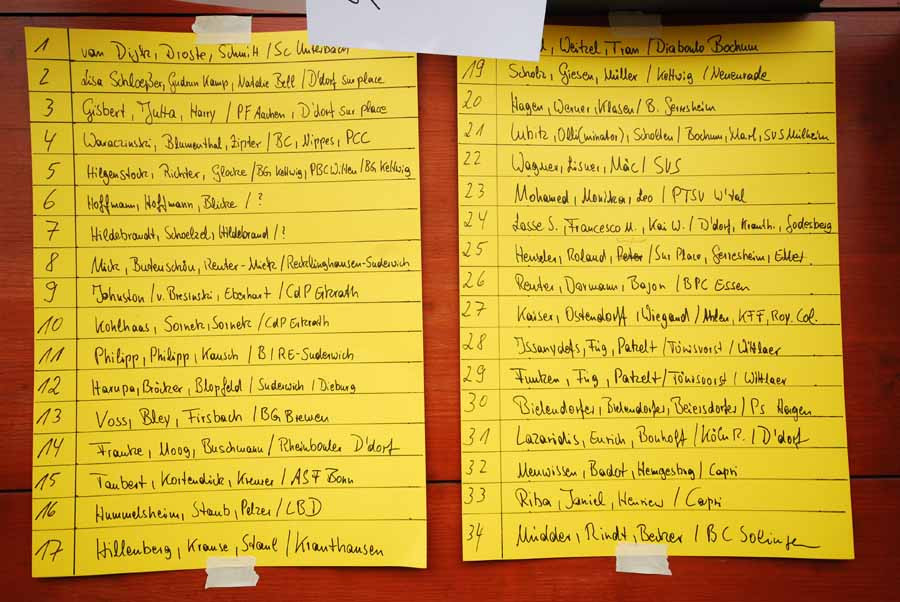 1 van Dijk, Droste, Schmitt / SC Unterbach
2 Lisa Schloeßer, Gudrun Kamp, Natalie Bell / D'dorf sur place
3 Gisbert, Jutta, Harry / PF Aachen, D'dorf sur place
4 Waraczinski, Blumenthal, Zipter / BC, Nippes, PCC
5 Hilgenstock, Richter, Glocke / BG Kettwig, PBC Witten / BG Kettwig
6 Hoffmann, Hoffmann, Blicke / ?
7 Hildebrandt, Schoelzel, Hildebrand / ?
8 Mietz, Butenschön, Renter-Mietz / Recklinghausen-Suderwich
9 Johnston / v. Bresinski, Eberhart / CdP Erkrath
10 Kohlhaas, Sornetz, Sornetz / CdP Erkrath
11 Philipp, Philipp, Kausch / B / RE-Suderwich
12 Harupa, Brötzer, Blopfeld / Suderwich / Dieburg
13 Voss, Bley, Firsbach / BG Brewen
14 Frantze, Moog, Buschmann / Rheinbouler D'dorf
15 Taubert, Kortendick, Kremer / ASF Bonn
16 Hummelsheim, Staub, Pelzer / LBD
17 Hillenberg, Krause, Staul / Kranthausen
Weitzel, Tran / Diabolo Bochum
19 Scholz, Giesen, Müller / Kettwig / Neuenrade
20 Hagen, Werner, Klasen / B. Gerresheim
21 Lubitz, Olli(minator), Scholten / Bochum, Marl, SVS Mülheim
22 Wagner, Lisner, Mäc / SVS
23 Mohamed, Moniken, Leo / PTSV W'tal
24 Lasse S., Francesco M., Kai W. / D'dorf, Kranth., Godesberg
25 Hensler, Roland, Peter / Sur Place, Gerresheim, Eller
26 Renter, Darmann, Bajon / BPC Essen
27 Kaiser, Ostendorff, Wiegand / Ahlen, KFF, Roy. Col.
28 Issanydets, Füg, Patzelt / Tönisvorst / Wittlaer
29 Funken, Füg, Patzelt / Tönisvorst / Wittlaer
30 Bielendorfer, Bielendorfer, Beiersdorfer / Ps Hagen
31 Lazaridis, Eurich, Bonhoff / Köln R. / D'dorf
32 Meuwissen, Badot, Hemgesbrg / Capri
33 Riba, Janiel, Henriew / Capri
34 Müdder, Rindt, Becker / BC Solingen